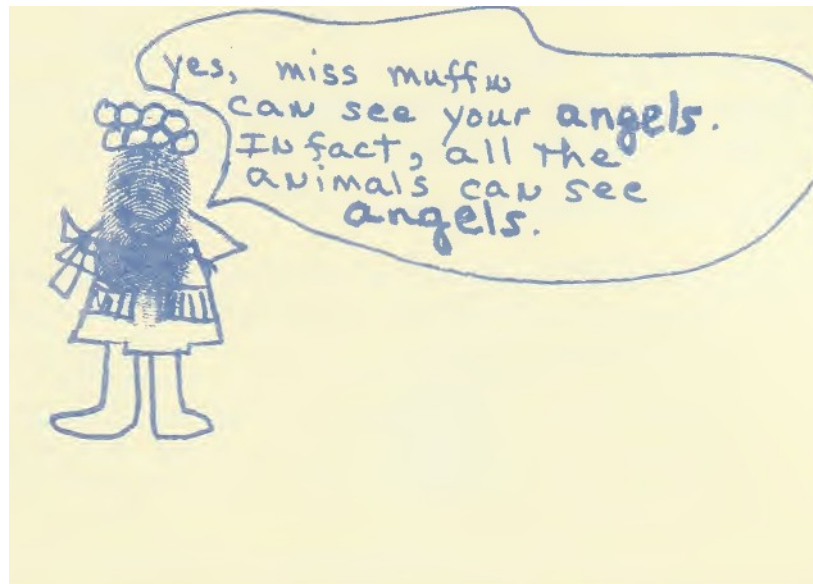 yes, miss muffin
can see your angels.
In fact, all the
animals can see
angels.